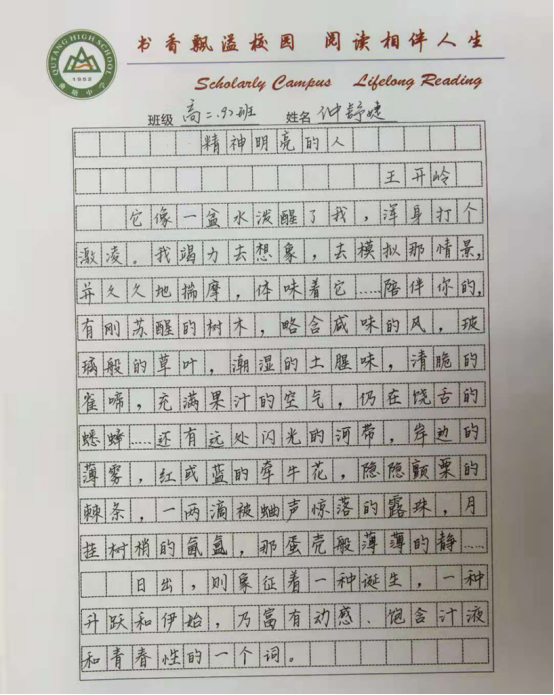 书香飘溢校园 阅读相伴人生
QUTANG HIGH SCHOOL
1952
曲塘中学
Scholarly Campus Lifelong Reading
班级 高二.9>班 姓名 仲舒婕
精神明亮的人
王开岭
它像一盆水泼醒了我，浑身打个
激凌。我竭力去想象，去模拟那情景，
并久久地揣摩，体味着它……陪伴你的，
有刚苏醒的树木，略含咸味的风，玻
璃般的草叶，潮湿的土腥味，清脆的
雀啼，充满果汁的空气，仍在饶舌的
蟋蟀……还有远处闪光的河带，岸边的
薄雾，红或蓝的牵牛花，隐隐颤栗的
棘条，一两滴被蛐声惊落的露珠，月
挂树梢的氤氲，那蛋壳般薄薄的静……
日出，则象征着一种诞生，一种
升跃和伊始，乃富有动感、饱含汁液
和青春性的一个词。